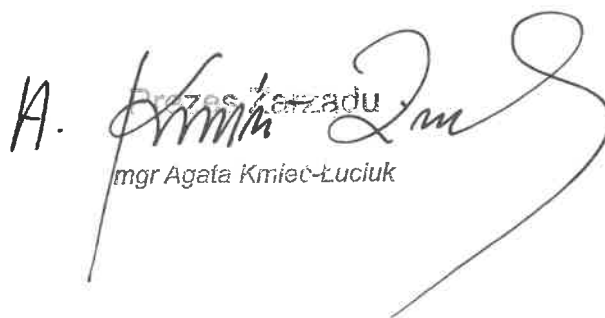 Prezes Zarządu
mgr Agata Kmieć-Łuciuk